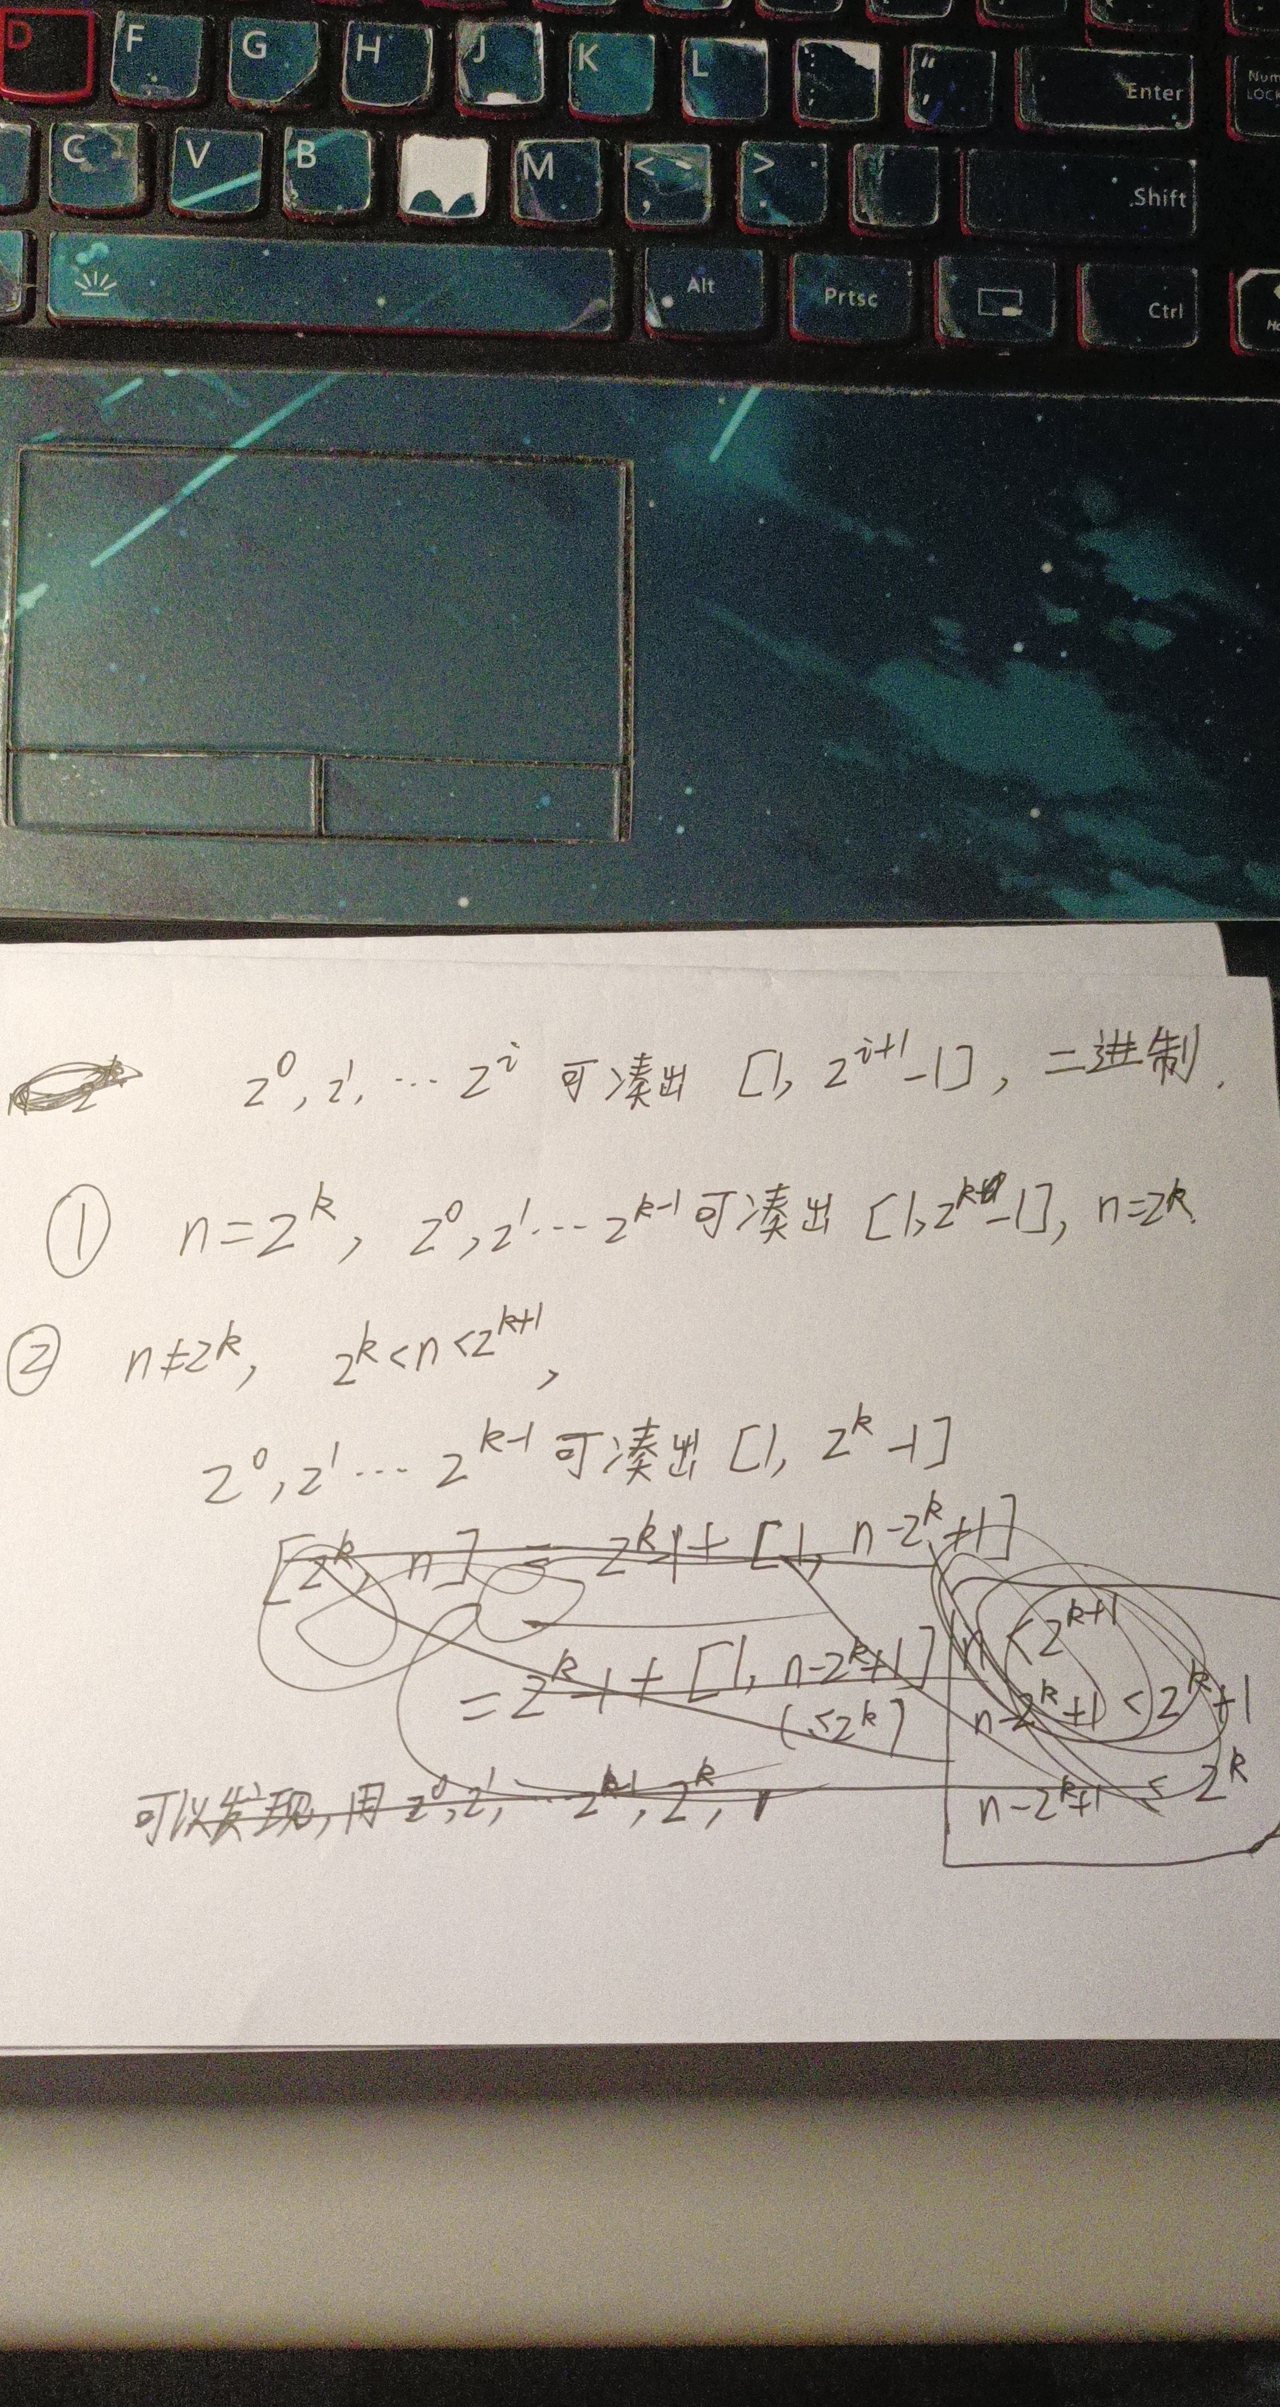 D F G H J K L : ; " ' Enter Num LOCK
C V B M < , > Shift
Alt Prtsc Ctrl
2^0, 2^1, ... 2^i 可凑出 [1, 2^{i+1}-1], 二进制.
① n=2^k, 2^0, 2^1 ... 2^{k-1} 可凑出 [1, 2^k-1], n=2^k.
② n≠2^k, 2^k<n<2^{k+1},
2^0, 2^1 ... 2^{k-1} 可凑出 [1, 2^k-1]
[2^k, n] = 2^k-1+[1, n-2^k+1]
n<2^{k+1}
=2^k-1+[1, n-2^k+1]
(≤2^k)
n-2^k+1<2^k+1
n-2^k+1≤2^k
可以发现, 用 2^0, 2^1, ... 2^{k-1}, 2^k,